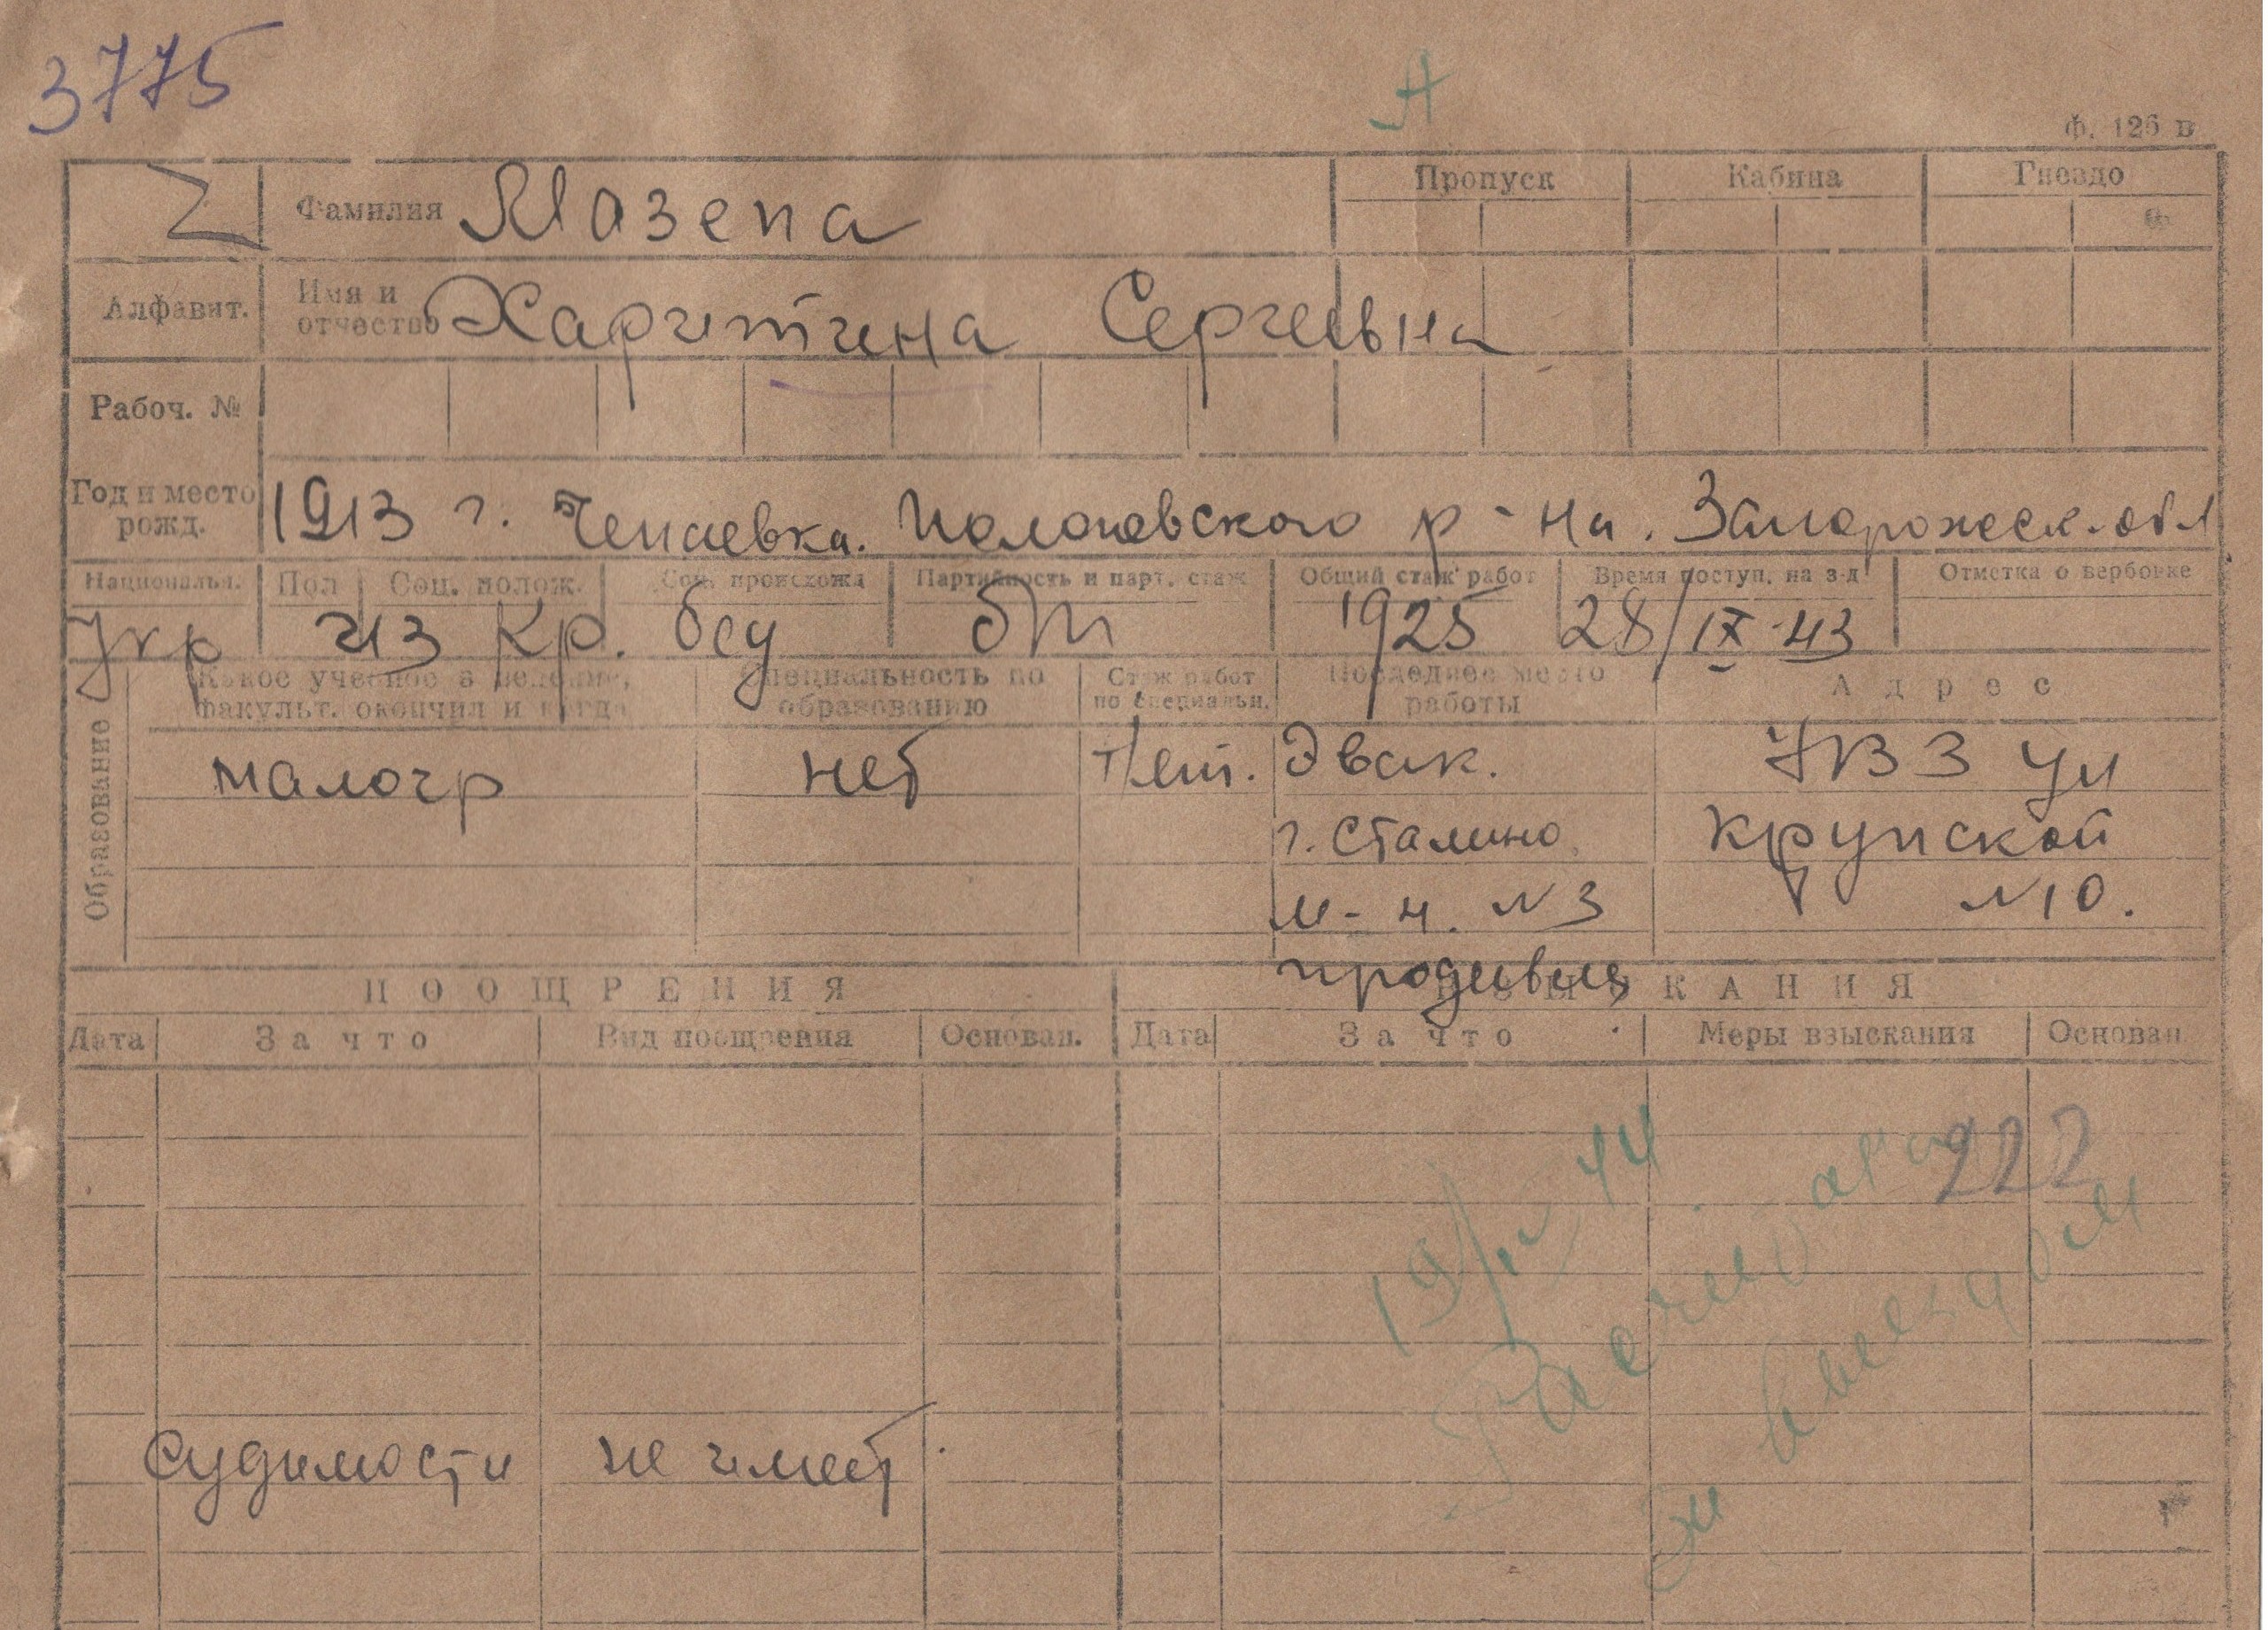 3775
Ф. 126 в
Фамилия Мазепа Пропуск Кабина Гнездо
Алфавит. Имя и отчество Харитина Сергеевна
Рабоч. №
Год и место рожд. 1913 г. Чепаевка. Пологовского р-на. Запорожск. обл
Национальн. Пол Соц. полож. Соц. происхожд Партийность и парт. стаж Общий стаж работ Время поступ. на з-д Отметка о вербовке
Укр из кр. бед бп 1925 28/IX-43
Образование
Какое учебное заведение, факульт. окончил и когда Специальность по образованию Стаж работ по специальн. Последнее место работы Адрес
малогр нет Нет. Эвак. УВЗ ул
г. Сталино Крупской
м-н. №3 №10.
продавец
ПООЩРЕНИЯ ВЗЫСКАНИЯ
Дата За что Вид поощрения Основан. Дата За что Меры взыскания Основан
222
19/IV 44
Расчет
судимости не имеет.